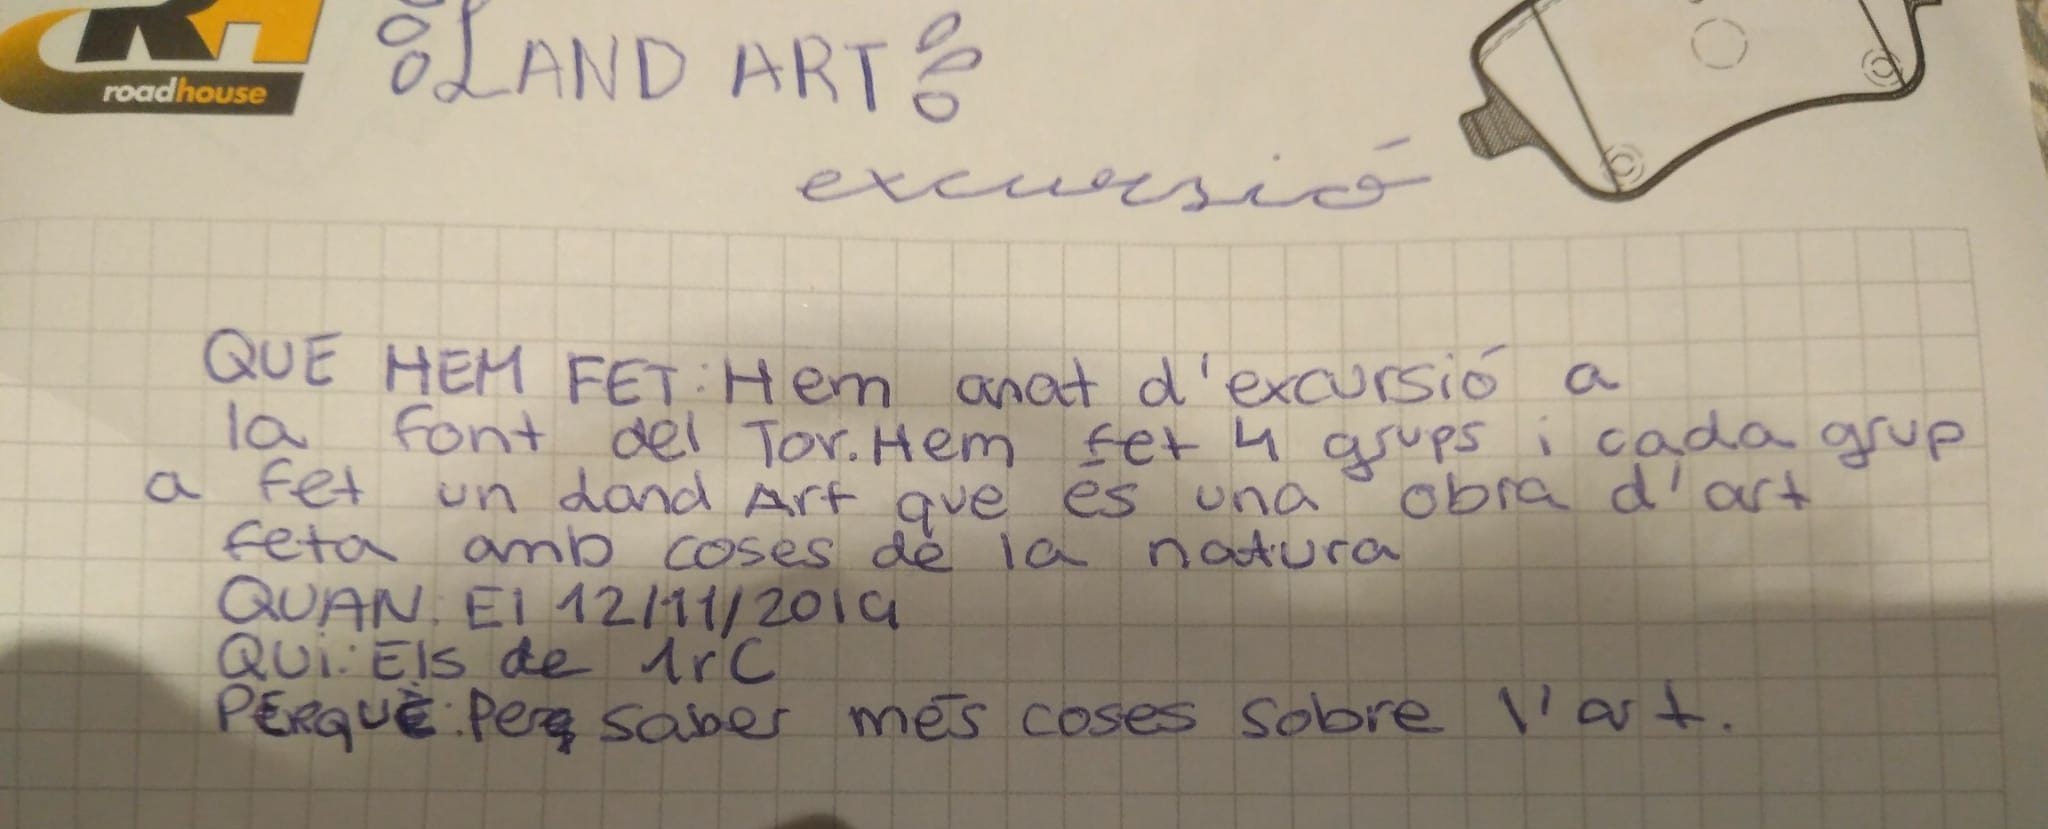 RH
roadhouse
LAND ART
excursió
QUE HEM FET: Hem anat d'excursió a
la font del Tor. Hem fet 4 grups i cada grup
a fet un Land Art que és una obra d'art
feta amb coses de la natura
QUAN: El 12/11/2019
QUi: Els de 1r C
PERQUÈ: Per saber més coses sobre l'art.